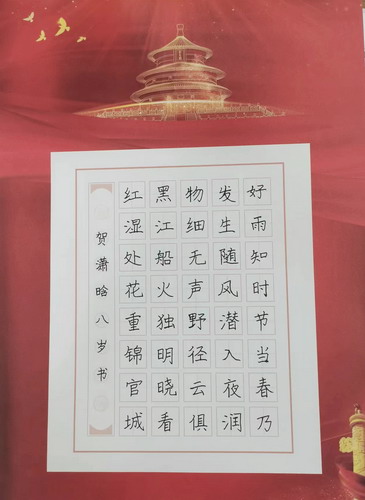 好雨知时节当春乃
发生随风潜入夜润
物细无声野径云俱
黑江船火独明晓看
红湿处花重锦官城
贺潇晗八岁书